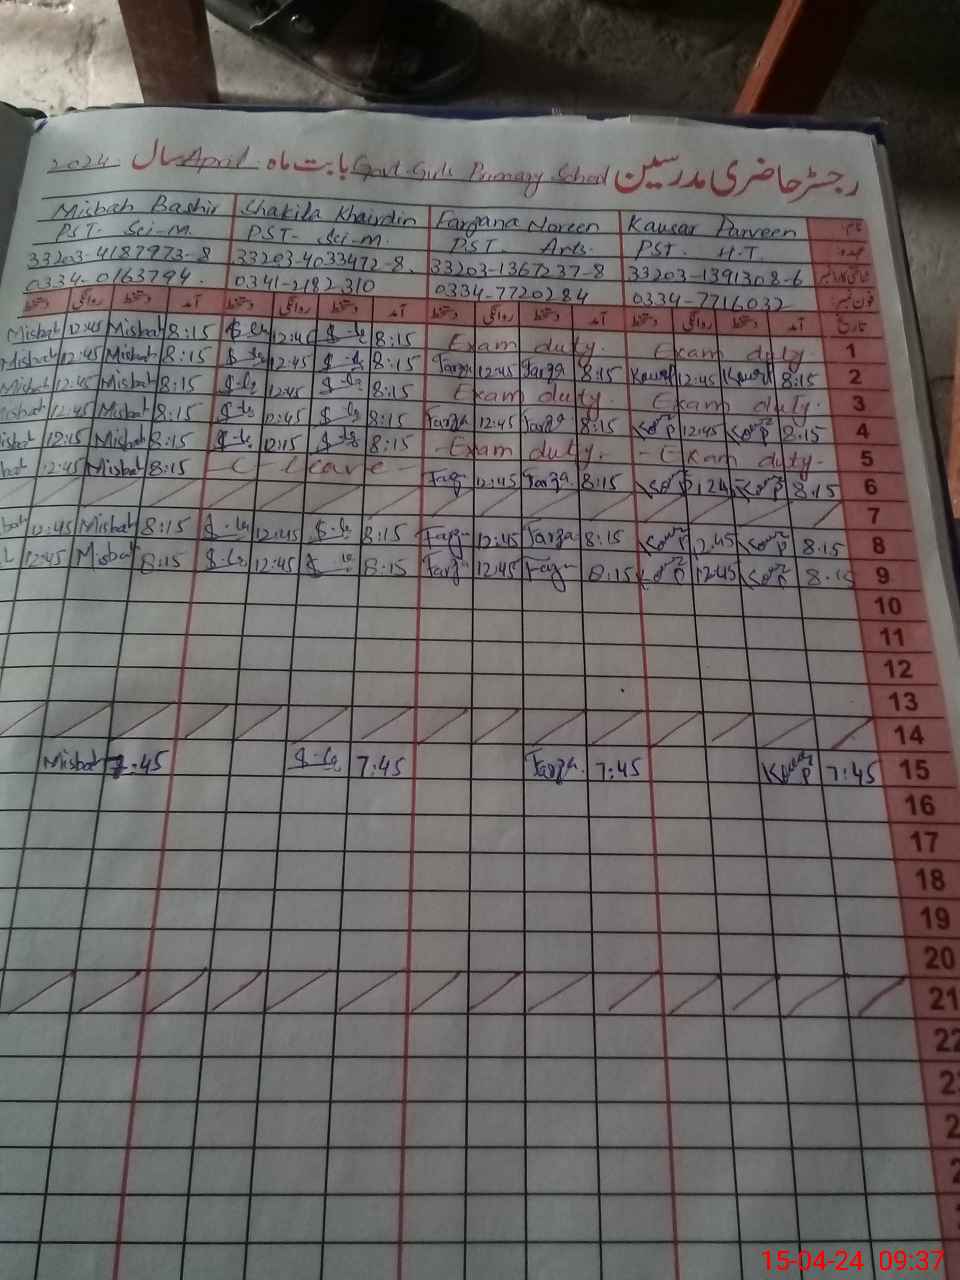 رجسٹر حاضری مدرسین Govt Girls Primary School بابت ماہ April سال 2024
Misbah Bashir Shakila Khairdin Fargana Noreen Kausar Parveen نام
PST- Sci-M. PST- Sci-M. PST- Arts. PST- H.T. عہدہ
33203-4187973-8 33203-4033472-8. 33203-1367237-8 33203-1391308-6
0334-0163794. 0341-2182310 0334-7720284 0334-7716032 فون نمبر
دستخط روانگی دستخط آمد دستخط روانگی دستخط آمد دستخط روانگی دستخط آمد دستخط روانگی دستخط آمد تاریخ
Misbah 12:45 Misbah 8:15 12:45 8:15 Exam duty. Exam duty. 1
Misbah 12:45 Misbah 8:15 12:45 8:15 Farza 12:45 Farza 8:15 12:45 8:15 2
Misbah 12:45 Misbah 8:15 12:45 8:15 Exam duty. Exam duty. 3
12:45 Misbah 8:15 12:45 8:15 Farza 12:45 Farza 8:15 12:45 8:15 4
12:15 Misbah 8:15 12:15 8:15 -Exam duty. -Exam duty- 5
12:45 Misbah 8:15 -C-Leave- 12:45 Farza 8:15 8:15 6
7
12:45 Misbah 8:15 12:45 8:15 12:45 Farza 8:15 12:45 8:15 8
12:45 Misbah 8:15 12:45 8:15 12:45 8:15 12:45 8:15 9
10
11
12
13
14
Misbah 7:45 7:45 Farza. 7:45 7:45 15
16
17
18
19
20
21
22
15-04-24 09:37